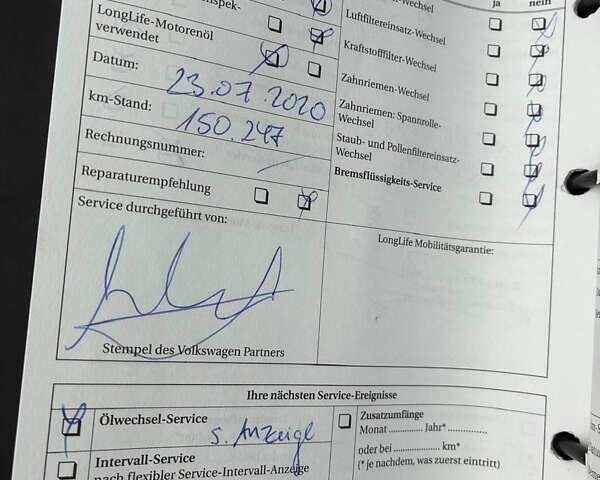 LongLife-Motorenöl
verwendet
Datum: 23.07.2020
km-Stand: 150.247
Rechnungsnummer:
Reparaturempfehlung
Service durchgeführt von:
Stempel des Volkswagen Partners
ja nein
Luftfiltereinsatz-Wechsel
Kraftstofffilter-Wechsel
Zahnriemen-Wechsel
Zahnriemen: Spannrolle-
Wechsel
Staub- und Pollenfiltereinsatz-
Wechsel
Bremsflüssigkeits-Service
LongLife Mobilitätsgarantie:
Ihre nächsten Service-Ereignisse
Ölwechsel-Service
s. Anzeige
Intervall-Service
nach flexibler Service-Intervall-Anzeige
Zusatzumfänge
Monat ............... Jahr* ...............
oder bei ............... km*
(* je nachdem, was zuerst eintritt)